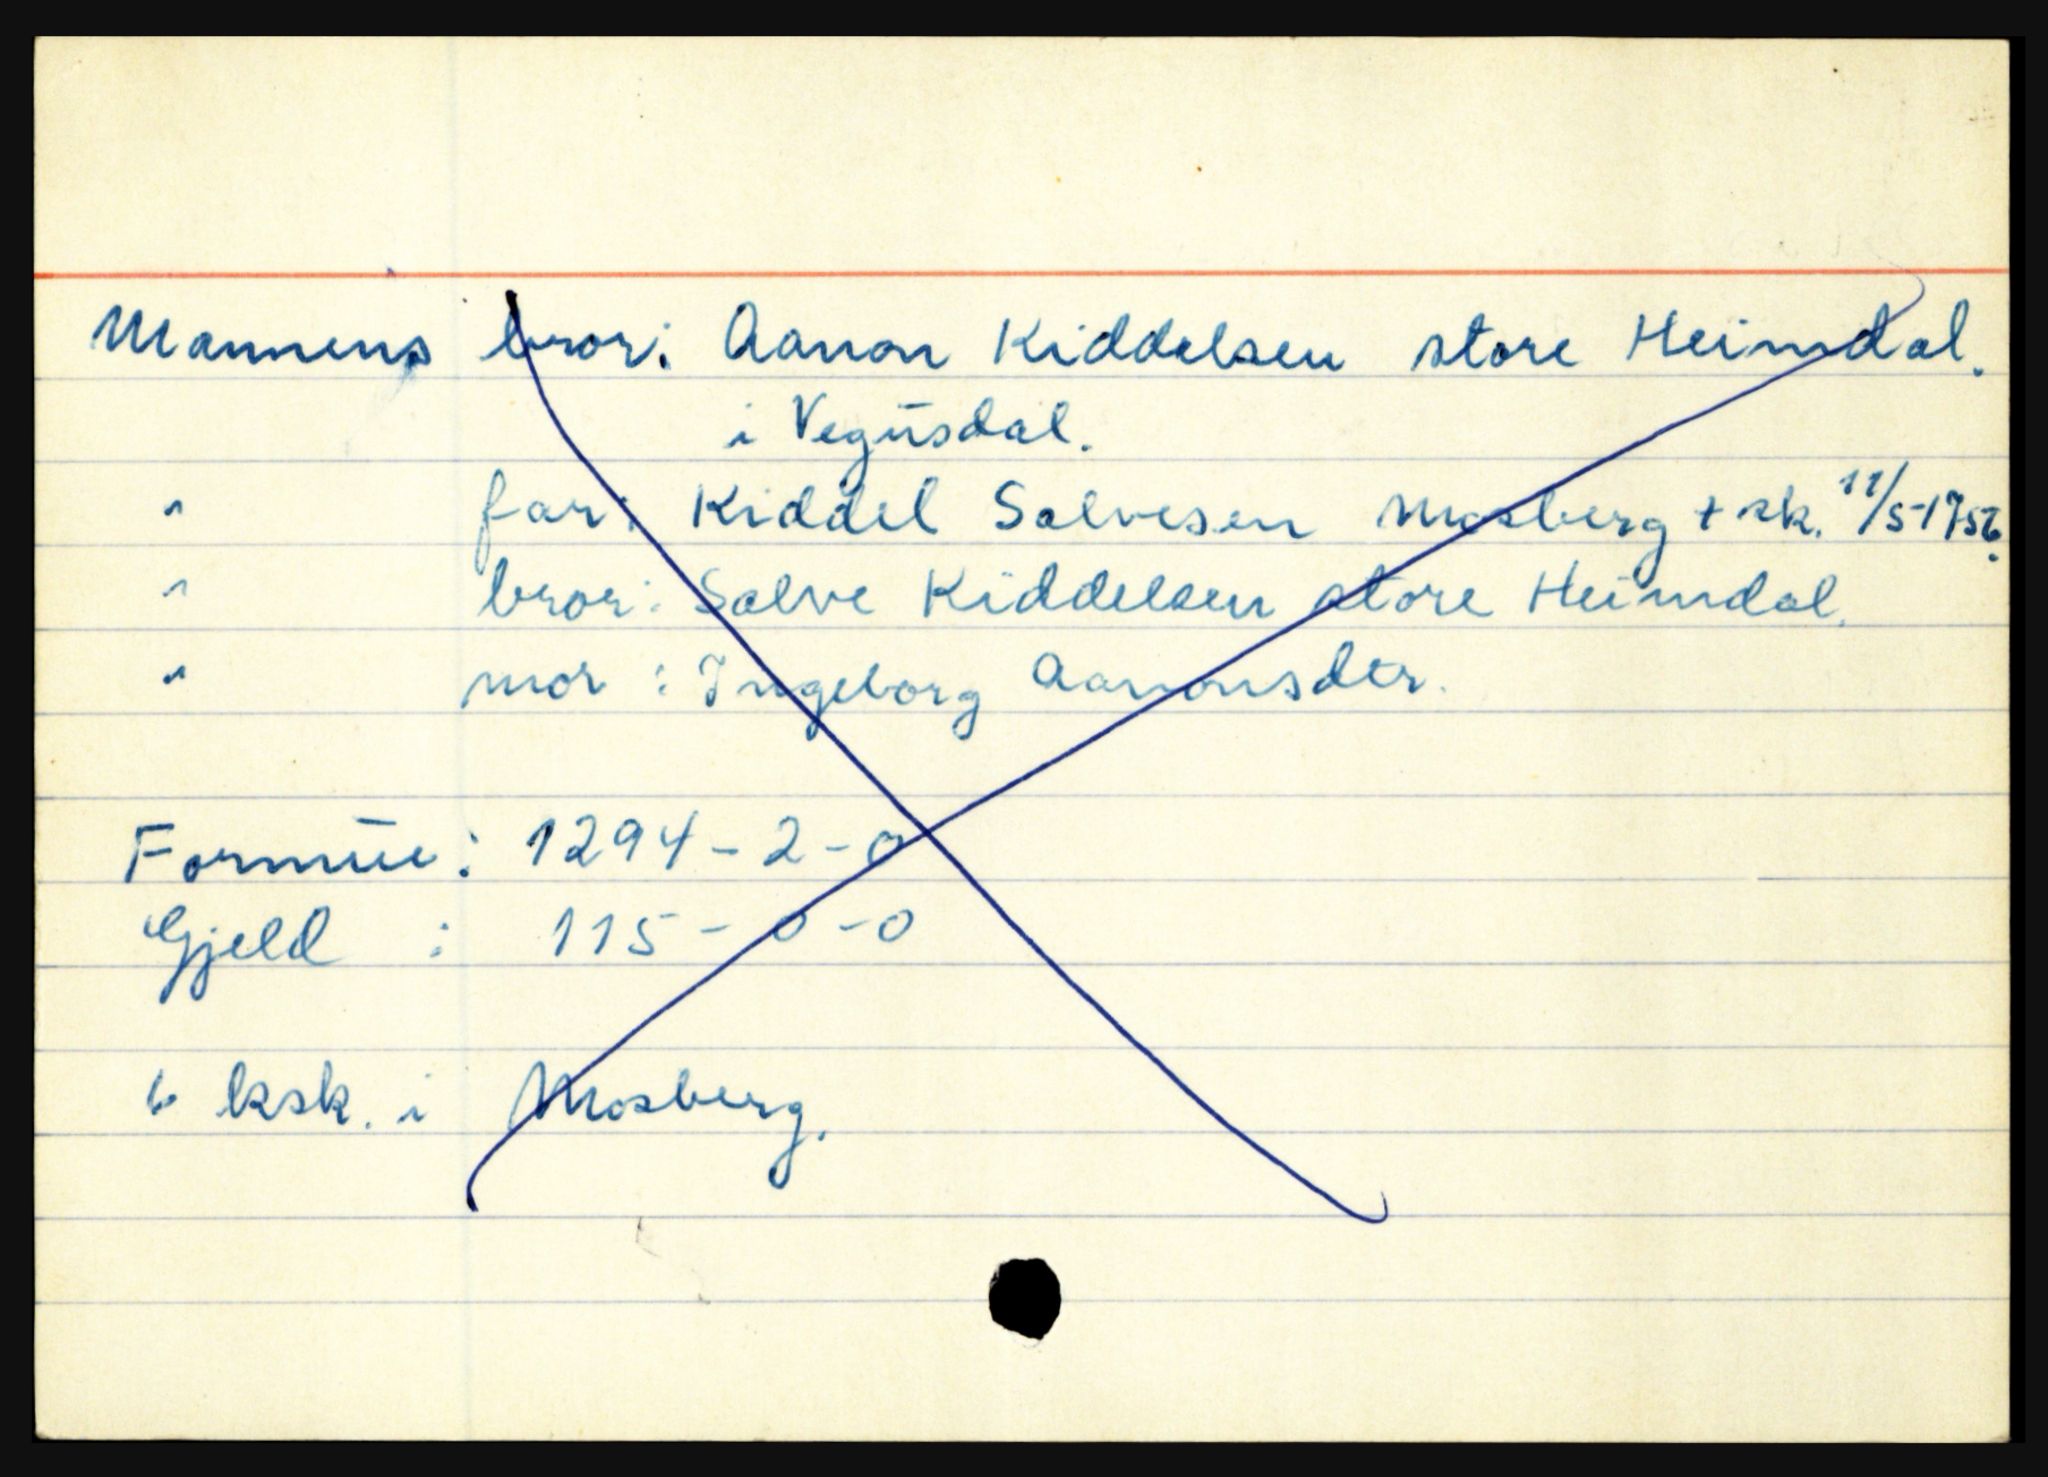 Mannens bror: Aanon Kiddelsen store Heimdal.
i Vegusdal.
" far: Kiddel Salvesen Mosberg + sk. 11/5-1756.
" bror: Salve Kiddelsen store Heimdal.
" mor: Ingeborg Aanonsdtr.
Formue: 1294-2-0
Gjeld : 115-0-0
6 ksk. i Mosberg.